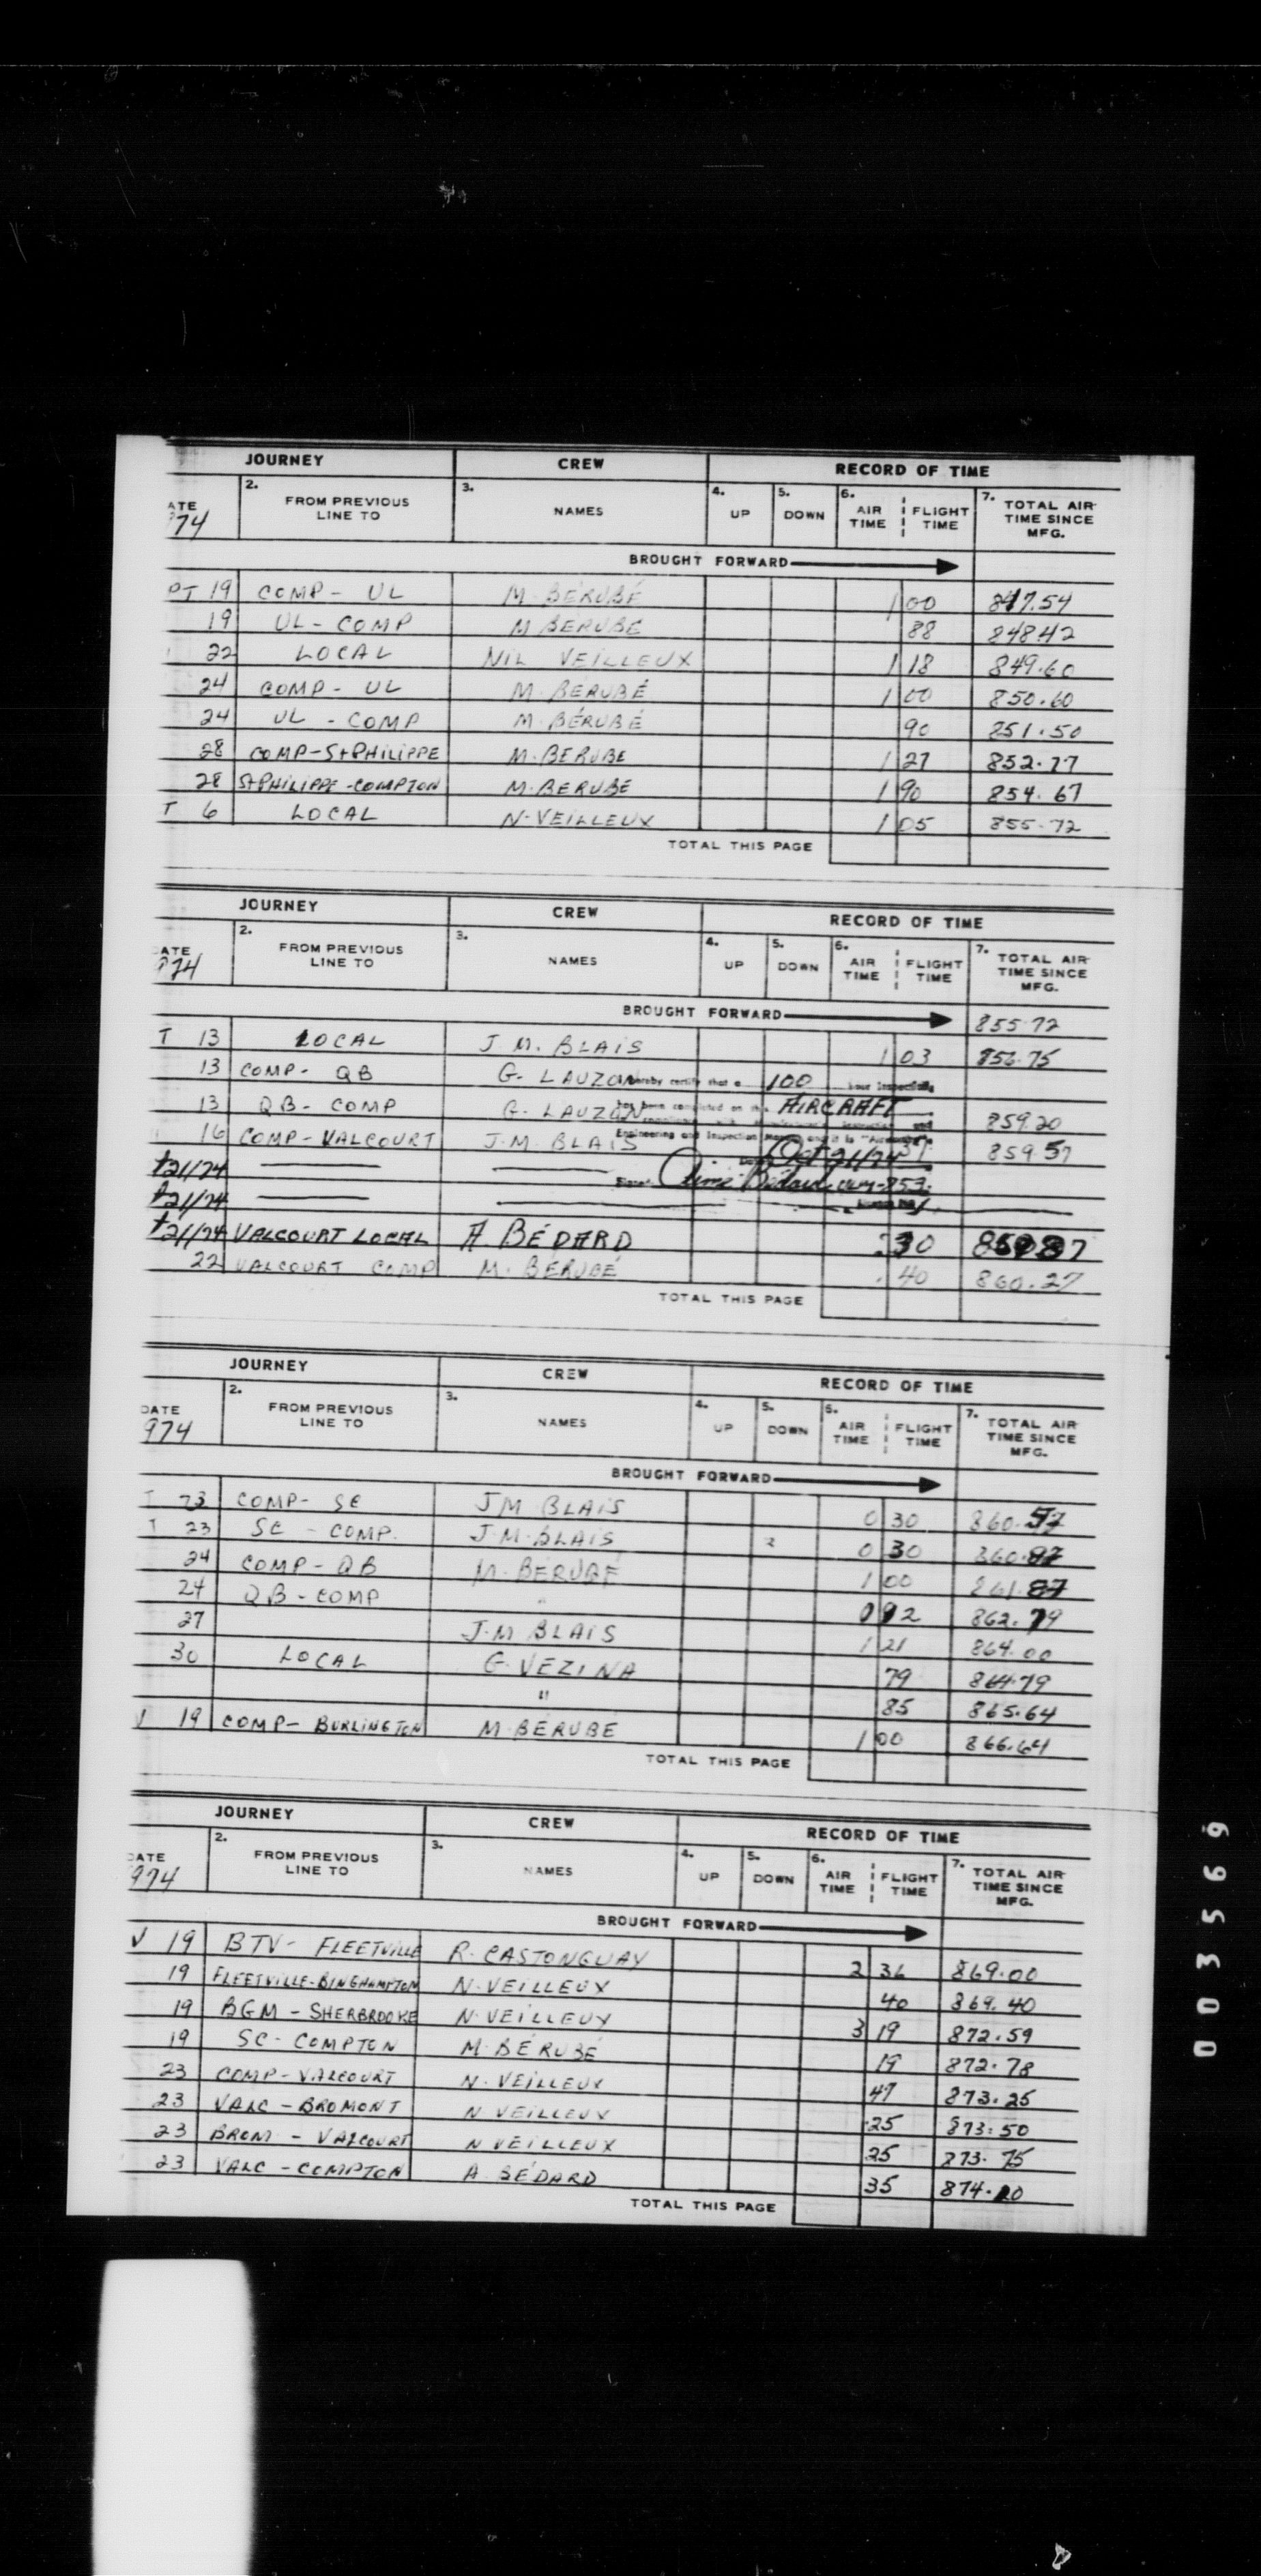 JOURNEY CREW RECORD OF TIME
ATE 2. FROM PREVIOUS LINE TO 3. NAMES 4. UP 5. DOWN 6. AIR TIME FLIGHT TIME 7. TOTAL AIR TIME SINCE MFG.
974
BROUGHT FORWARD
PT 19 COMP - UL M. BÉRUBÉ 1 00 847.54
19 UL - COMP M BERUBE 88 848.42
22 LOCAL NIL VEILLEUX 1 18 849.60
24 COMP - UL M. BÉRUBÉ 1 00 850.60
24 UL - COMP M. BÉRUBÉ 90 851.50
28 COMP-St PHILIPPE M. BERUBE 1 27 852.77
28 St PHILIPPE-COMPTON M. BERUBE 1 90 854.67
T 6 LOCAL N. VEILLEUX 1 05 855.72
TOTAL THIS PAGE
JOURNEY CREW RECORD OF TIME
DATE 2. FROM PREVIOUS LINE TO 3. NAMES 4. UP 5. DOWN 6. AIR TIME FLIGHT TIME 7. TOTAL AIR TIME SINCE MFG.
974
BROUGHT FORWARD 855.72
T 13 LOCAL J.M. BLAIS 1 03 856.75
13 COMP - QB G. LAUZON hereby certify that a 100 hour inspection
13 QB - COMP G. LAUZON has been completed on this AIRCRAFT 859.20
16 COMP-VALCOURT J.M. BLAIS Engineering and Inspection 37 859.57
t 21/74 Oct 21/74
t 21/74 Bédard
t 21/74 VALCOURT LOCAL A. BÉDARD .30 859.87
22 VALCOURT COMP M. BÉRUBÉ .40 860.27
TOTAL THIS PAGE
JOURNEY CREW RECORD OF TIME
DATE 2. FROM PREVIOUS LINE TO 3. NAMES 4. UP 5. DOWN 6. AIR TIME FLIGHT TIME 7. TOTAL AIR TIME SINCE MFG.
974
BROUGHT FORWARD
T 23 COMP - SC J M BLAIS 0 30 860.57
T 23 SC - COMP. J.M. BLAIS 0 30 860.87
24 COMP - QB M. BERUBE 1 00 861.87
24 QB - COMP " 0 92 862.79
27 J.M BLAIS 1 21 864.00
30 LOCAL G. VEZINA 79 864.79
" 85 865.64
V 19 COMP - BURLINGTON M. BERUBE 1 00 866.64
TOTAL THIS PAGE
JOURNEY CREW RECORD OF TIME
DATE 2. FROM PREVIOUS LINE TO 3. NAMES 4. UP 5. DOWN 6. AIR TIME FLIGHT TIME 7. TOTAL AIR TIME SINCE MFG.
974
BROUGHT FORWARD
V 19 BTV - FLEETVILLE R. CASTONGUAY 2 36 869.00
19 FLEETVILLE-BINGHAMPTON N. VEILLEUX 40 869.40
19 BGM - SHERBROOKE N. VEILLEUX 3 19 872.59
19 SC - COMPTON M. BÉRUBÉ 19 872.78
23 COMP - VALCOURT N. VEILLEUX 47 873.25
23 VALC - BROMONT N VEILLEUX .25 873.50
23 BROM - VALCOURT N VEILLEUX 25 873.75
23 VALC - COMPTON A. BÉDARD 35 874.10
TOTAL THIS PAGE
003569